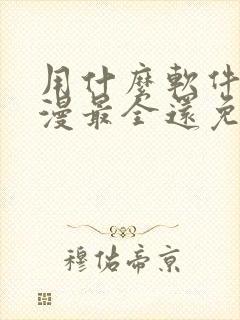 用什麼軟件
漫最全還免
穆佑帝京